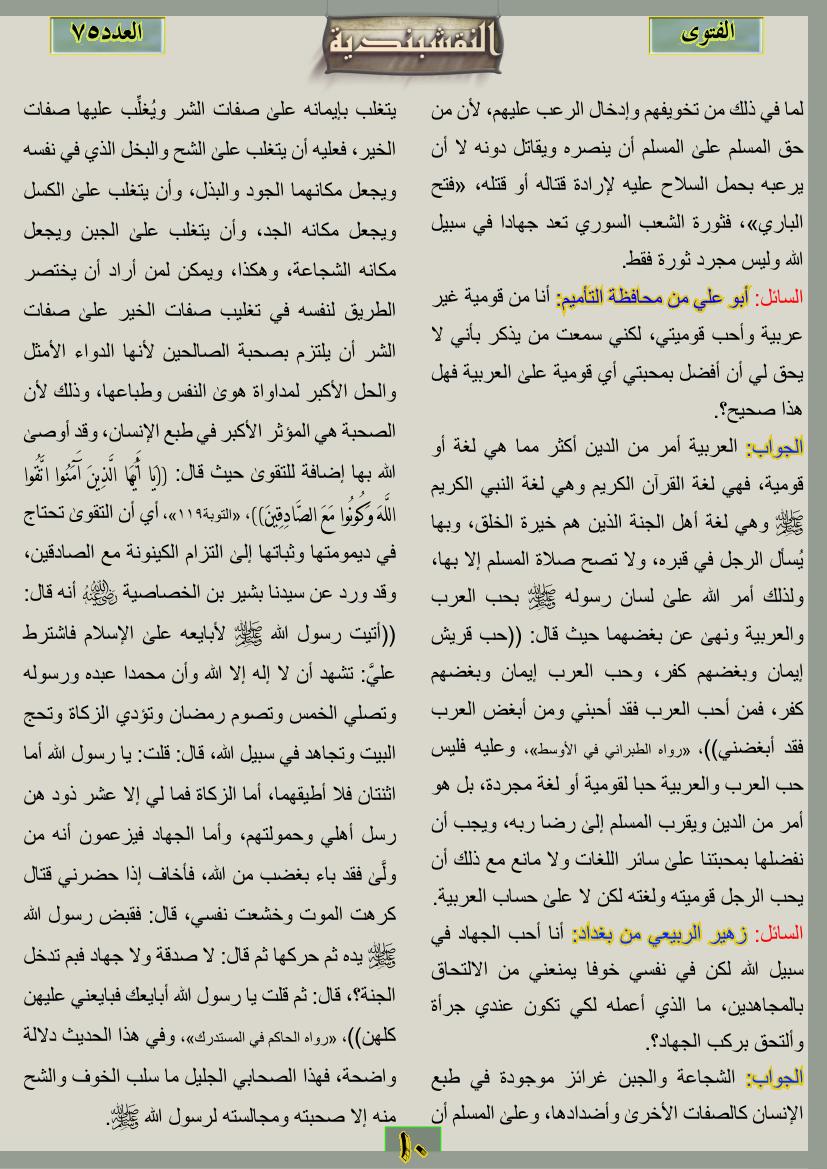 الفتوى
النقشبندية
العدد٧٥
لما في ذلك من تخويفهم وإدخال الرعب عليهم، لأن من
حق المسلم على المسلم أن ينصره ويقاتل دونه لا أن
يرعبه بحمل السلاح عليه لإرادة قتاله أو قتله، «فتح
الباري»، فثورة الشعب السوري تعد جهادا في سبيل
الله وليس مجرد ثورة فقط.
السائل: أبو علي من محافظة التأميم: أنا من قومية غير
عربية وأحب قوميتي، لكني سمعت من يذكر بأني لا
يحق لي أن أفضل بمحبتي أي قومية على العربية فهل
هذا صحيح؟.
الجواب: العربية أمر من الدين أكثر مما هي لغة أو
قومية، فهي لغة القرآن الكريم وهي لغة النبي الكريم
ﷺ وهي لغة أهل الجنة الذين هم خيرة الخلق، وبها
يُسأل الرجل في قبره، ولا تصح صلاة المسلم إلا بها،
ولذلك أمر الله على لسان رسوله ﷺ بحب العرب
والعربية ونهى عن بغضهما حيث قال: ((حب قريش
إيمان وبغضهم كفر، وحب العرب إيمان وبغضهم
كفر، فمن أحب العرب فقد أحبني ومن أبغض العرب
فقد أبغضني))، «رواه الطبراني في الأوسط»، وعليه فليس
حب العرب والعربية حبا لقومية أو لغة مجردة، بل هو
أمر من الدين ويقرب المسلم إلى رضا ربه، ويجب أن
نفضلها بمحبتنا على سائر اللغات ولا مانع مع ذلك أن
يحب الرجل قوميته ولغته لكن لا على حساب العربية.
السائل: زهير الربيعي من بغداد: أنا أحب الجهاد في
سبيل الله لكن في نفسي خوفا يمنعني من الالتحاق
بالمجاهدين، ما الذي أعمله لكي تكون عندي جرأة
وألتحق بركب الجهاد؟.
الجواب: الشجاعة والجبن غرائز موجودة في طبع
الإنسان كالصفات الأخرى وأضدادها، وعلى المسلم أن
يتغلب بإيمانه على صفات الشر ويُغلِّب عليها صفات
الخير، فعليه أن يتغلب على الشح والبخل الذي في نفسه
ويجعل مكانهما الجود والبذل، وأن يتغلب على الكسل
ويجعل مكانه الجد، وأن يتغلب على الجبن ويجعل
مكانه الشجاعة، وهكذا، ويمكن لمن أراد أن يختصر
الطريق لنفسه في تغليب صفات الخير على صفات
الشر أن يلتزم بصحبة الصالحين لأنها الدواء الأمثل
والحل الأكبر لمداواة هوى النفس وطباعها، وذلك لأن
الصحبة هي المؤثر الأكبر في طبع الإنسان، وقد أوصى
الله بها إضافة للتقوى حيث قال: ((يَا أَيُّهَا الَّذِينَ آَمَنُوا اتَّقُوا
اللَّهَ وَكُونُوا مَعَ الصَّادِقِينَ))، «التوبة١١٩»، أي أن التقوى تحتاج
في ديمومتها وثباتها إلى التزام الكينونة مع الصادقين،
وقد ورد عن سيدنا بشير بن الخصاصية رضي الله عنه أنه قال:
((أتيت رسول الله ﷺ لأبايعه على الإسلام فاشترط
عليَّ: تشهد أن لا إله إلا الله وأن محمدا عبده ورسوله
وتصلي الخمس وتصوم رمضان وتؤدي الزكاة وتحج
البيت وتجاهد في سبيل الله، قال: قلت: يا رسول الله أما
اثنتان فلا أطيقهما، أما الزكاة فما لي إلا عشر ذود هن
رسل أهلي وحمولتهم، وأما الجهاد فيزعمون أنه من
ولَّى فقد باء بغضب من الله، فأخاف إذا حضرني قتال
كرهت الموت وخشعت نفسي، قال: فقبض رسول الله
ﷺ يده ثم حركها ثم قال: لا صدقة ولا جهاد فبم تدخل
الجنة؟، قال: ثم قلت يا رسول الله أبايعك فبايعني عليهن
كلهن))، «رواه الحاكم في المستدرك»، وفي هذا الحديث دلالة
واضحة، فهذا الصحابي الجليل ما سلب الخوف والشح
منه إلا صحبته ومجالسته لرسول الله ﷺ.
١٠